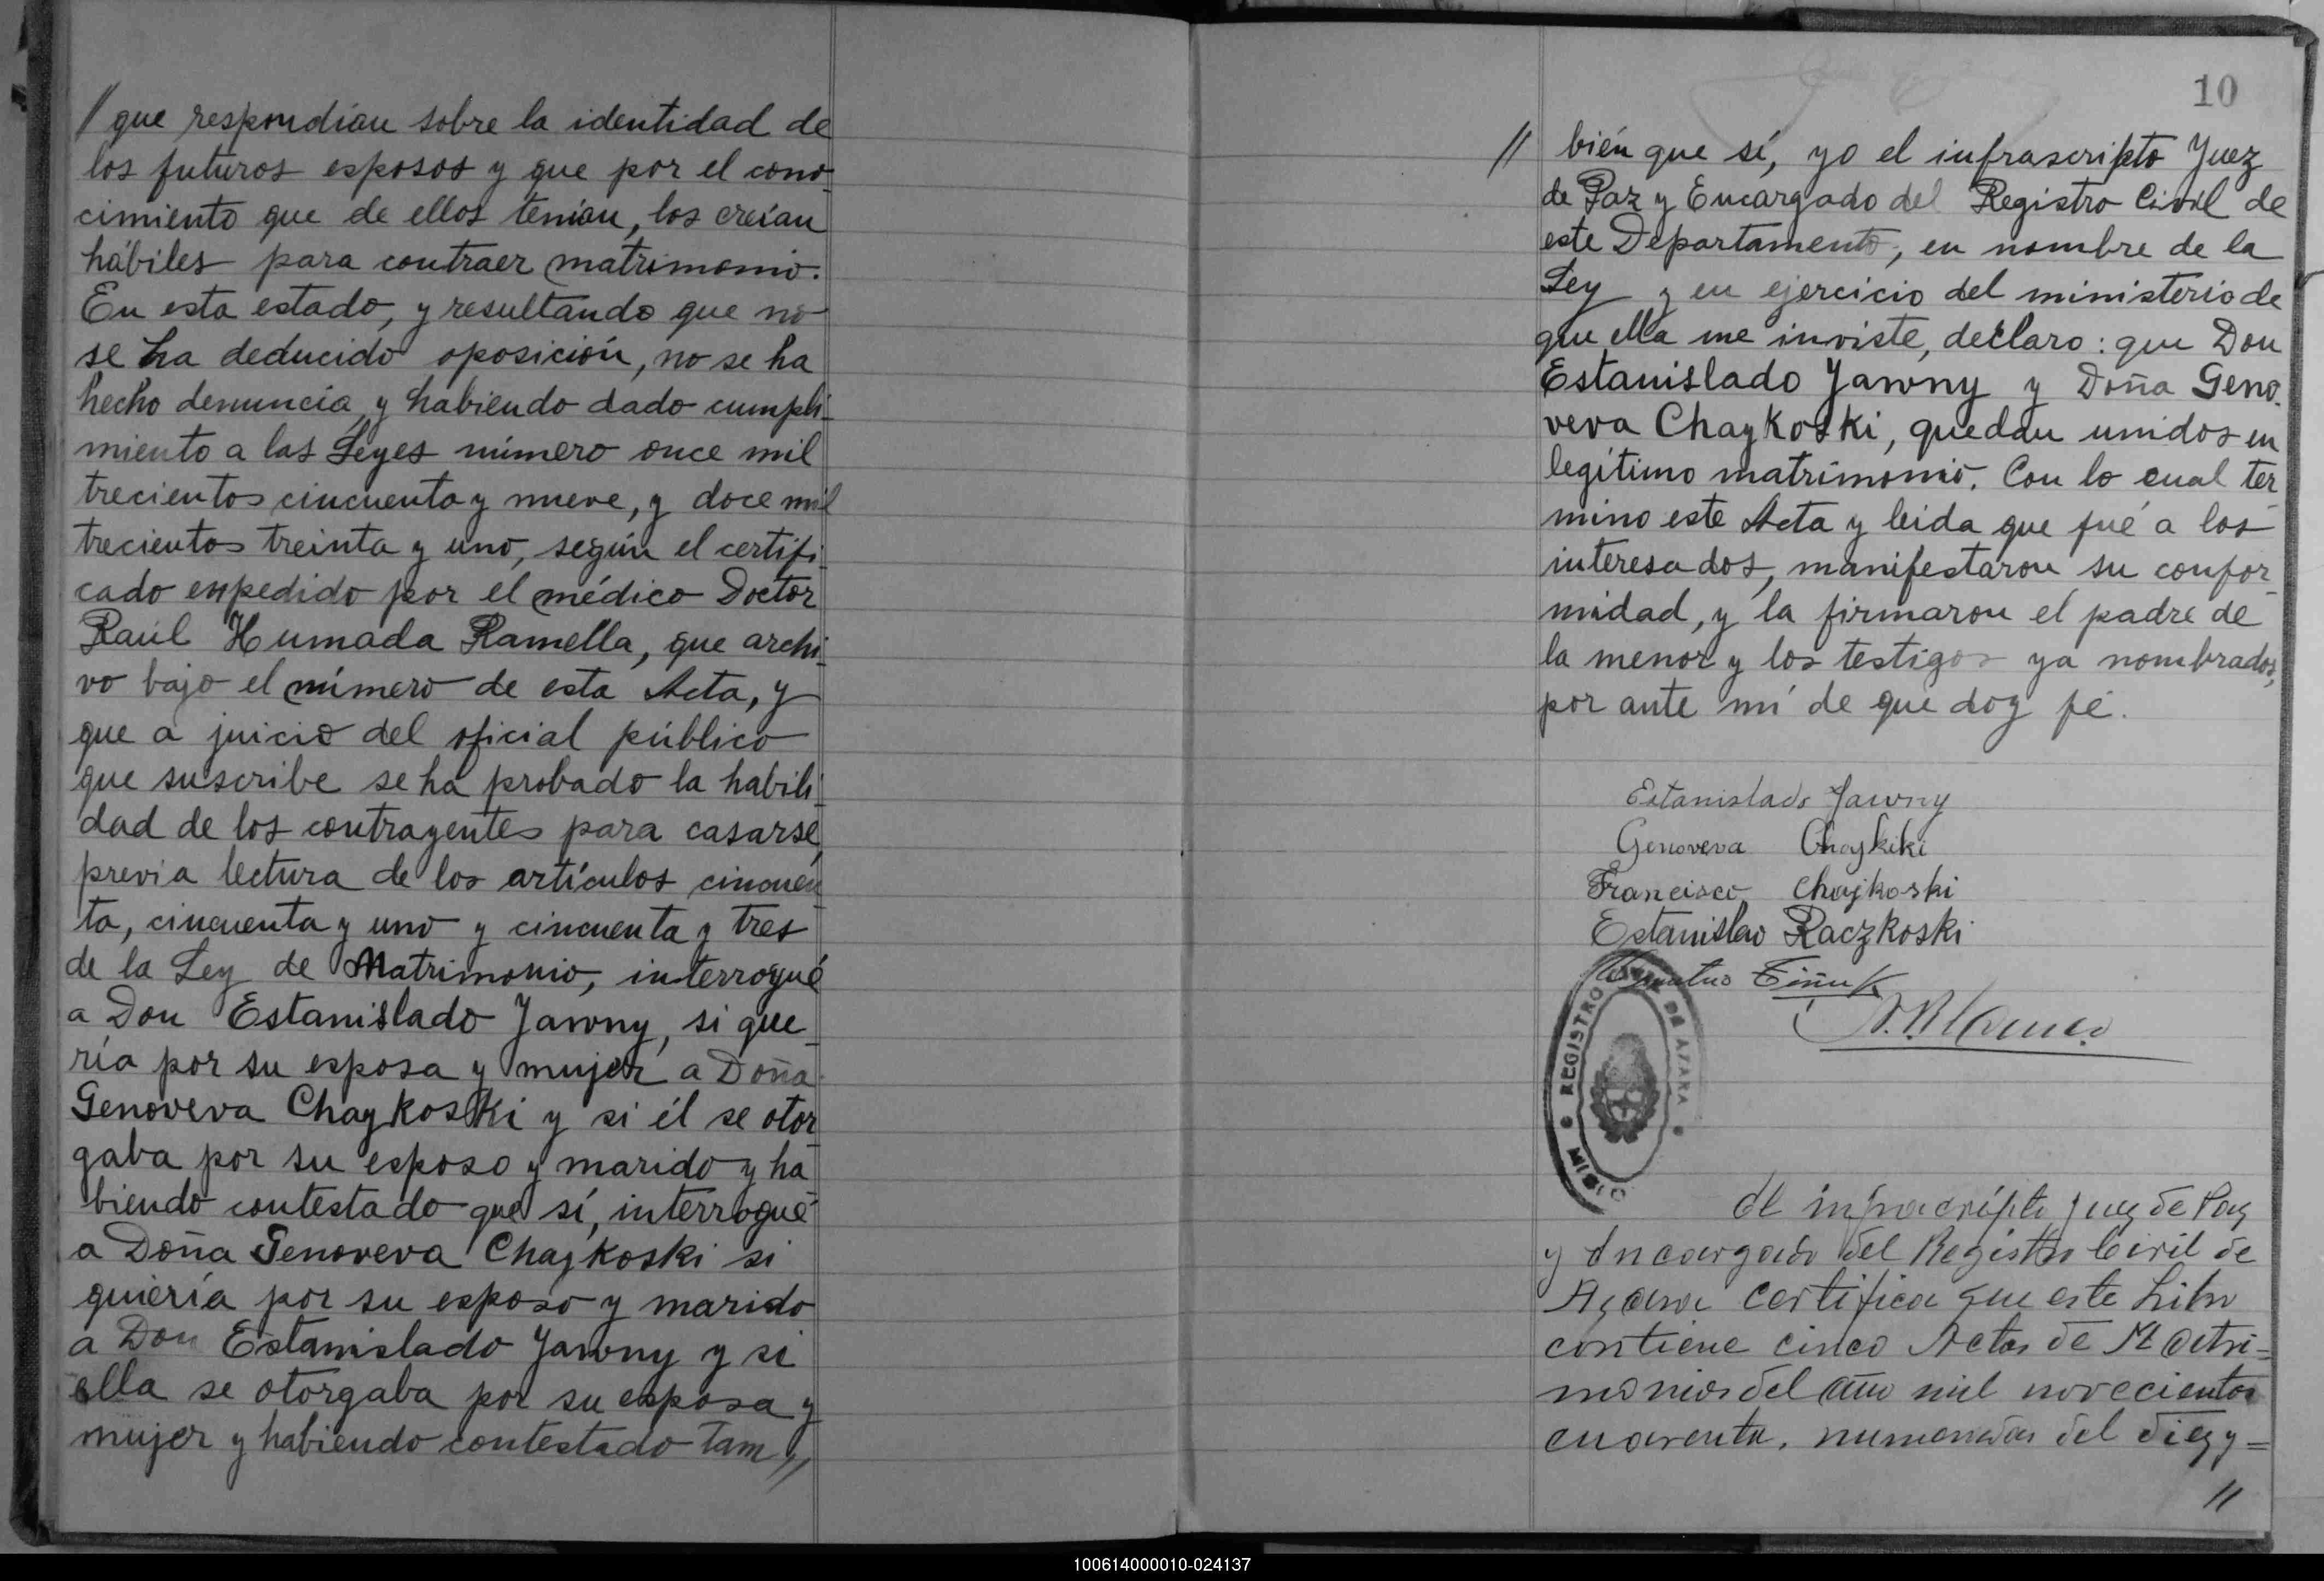 // que respondían sobre la identidad de
los futuros esposos y que por el cono-
cimiento que de ellos tenían, los creían
hábiles para contraer matrimonio.
En esta estado, y resultando que no
se ha deducido oposición, no se ha
hecho denuncia, y habiendo dado cumpli-
miento a las Leyes número once mil
trecientos cincuenta y nueve, y doce mil
trecientos treinta y uno, según el certifi-
cado expedido por el médico Doctor
Raúl Humada Ramella, que archi-
vo bajo el número de esta Acta, y
que a juicio del oficial público
que suscribe se ha probado la habili-
dad de los contrayentes para casarse,
previa lectura de los artículos cincuen-
ta, cincuenta y uno y cincuenta y tres
de la Ley de Matrimonio, interrogué
a Don Estanislado Jawny, si que-
ría por su esposa y mujer a Doña
Genoveva Chaykoski y si él se otor-
gaba por su esposo y marido y ha-
biendo contestado que sí, interrogué
a Doña Genoveva Chajkoski si
quiería por su esposo y marido
a Don Estanislado Jawny y si
ella se otorgaba por su esposa y
mujer y habiendo contestado tam //
10
// bién que sí, yo el infrascripto Juez
de Paz y Encargado del Registro Civil de
este Departamento, en nombre de la
Ley y en ejercicio del ministerio de
que ella me inviste, declaro: que Don
Estanislado Jawny y Doña Geno-
veva Chaykoski, quedan unidos en
legítimo matrimonio. Con lo cual ter-
mino este Acta y leida que fué a los
interesados, manifestaron su confor-
midad, y la firmaron el padre de
la menor y los testigos ya nombrados,
por ante mí de que doy fé.
Estanislado Jawny
Genoveva Chajkiki
Francisco Chajkoski
Estanislao Raczkoski
REGISTRO DE AZARA
MISIO
El infrascripto Juez de Paz
y Encargado del Registro Civil de
Azara certifica que este Libro
contiene cinco Actas de Matri=
monios del año mil novecientos
cuarenta, numeradas del diez y=
//
100614000010-024137